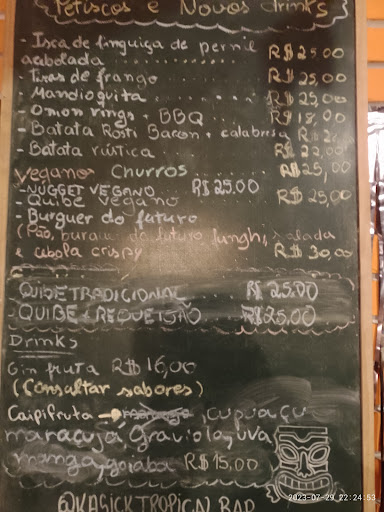 Petiscos e Novos drinks
- Isca de linguiça de pernil
acebolada ............ R$25,00
- Tiras de frango ..... R$25,00
- Mandioquita ........ R$25,00
- Onion rings + BBQ .. R$18,00
- Batata Rosti Bacon + calabresa R$
- Batata rústica ....... R$22,00
Churros ...... R$25,00
vegano
- NUGGET VEGANO R$25.00
- Quibe vegano ...... R$25,00
- Burguer do futuro
(Pão, do futuro funghi, salada
e cebola crispy R$30,00
QUIBE TRADICIONAL ... R$25.00
QUIBE + REQUEIJÃO .. R$25.00
Drinks
Gin fruta R$16,00
(Consultar sabores)
Caipifruta → cupuaçu
maracujá, Graviola, uva
manga, goiaba R$15,00
@KASICKTROPICAL BAR
2023-07-29 22:24:53